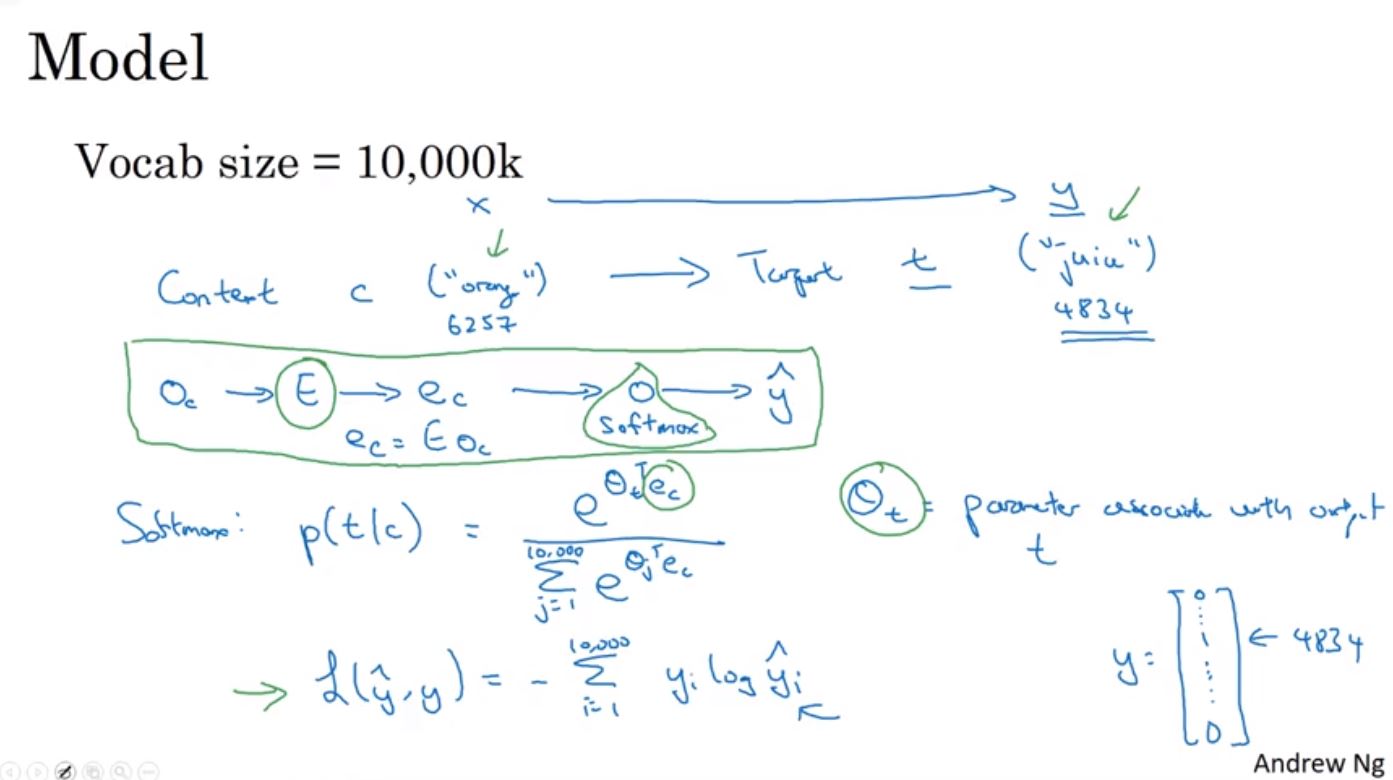 Model
Vocab size = 10,000k
x ⟶ y
Content c ("orang") ⟶ Target t ("juice")
6257 4834
O_c → E → e_c ⟶ o ⟶ ŷ
softmax
e_c = E O_c
Softmax: p(t|c) = e^{θ_t^T e_c} / Σ_{j=1}^{10,000} e^{θ_j^T e_c}
θ_t = parameter associate with output t
L(ŷ, y) = - Σ_{i=1}^{10,000} y_i log ŷ_i
y = [0 ⋮ 1 ⋮ 0] ← 4834
Andrew Ng